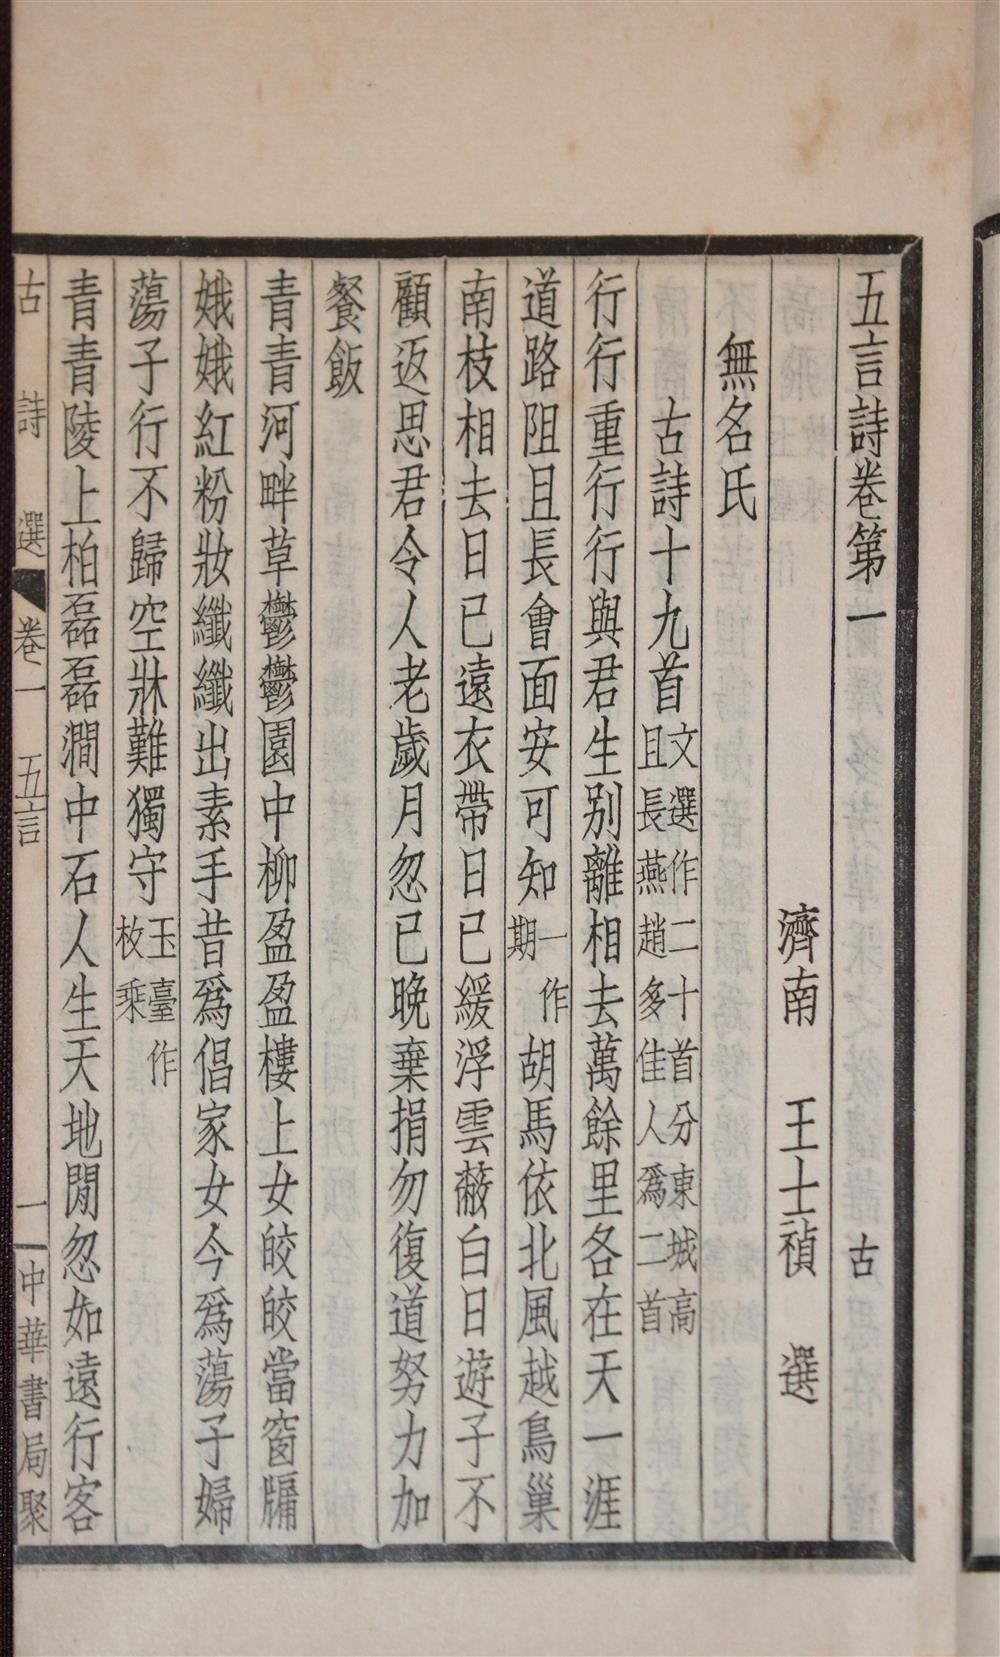 五言詩卷第一　古
濟南　王士禎　選
無名氏
古詩十九首文選作二十首分東城高且長燕趙多佳人爲二首
行行重行行與君生別離相去萬餘里各在天一涯
道路阻且長會面安可知一作期胡馬依北風越鳥巢
南枝相去日已遠衣帶日已緩浮雲蔽白日遊子不
顧返思君令人老歲月忽已晚棄捐勿復道努力加
餐飯
青青河畔草鬱鬱園中柳盈盈樓上女皎皎當窗牖
娥娥紅粉妝纖纖出素手昔爲倡家女今爲蕩子婦
蕩子行不歸空牀難獨守玉臺作枚乘
青青陵上柏磊磊澗中石人生天地閒忽如遠行客
古詩選　卷一　五言　一　中華書局聚